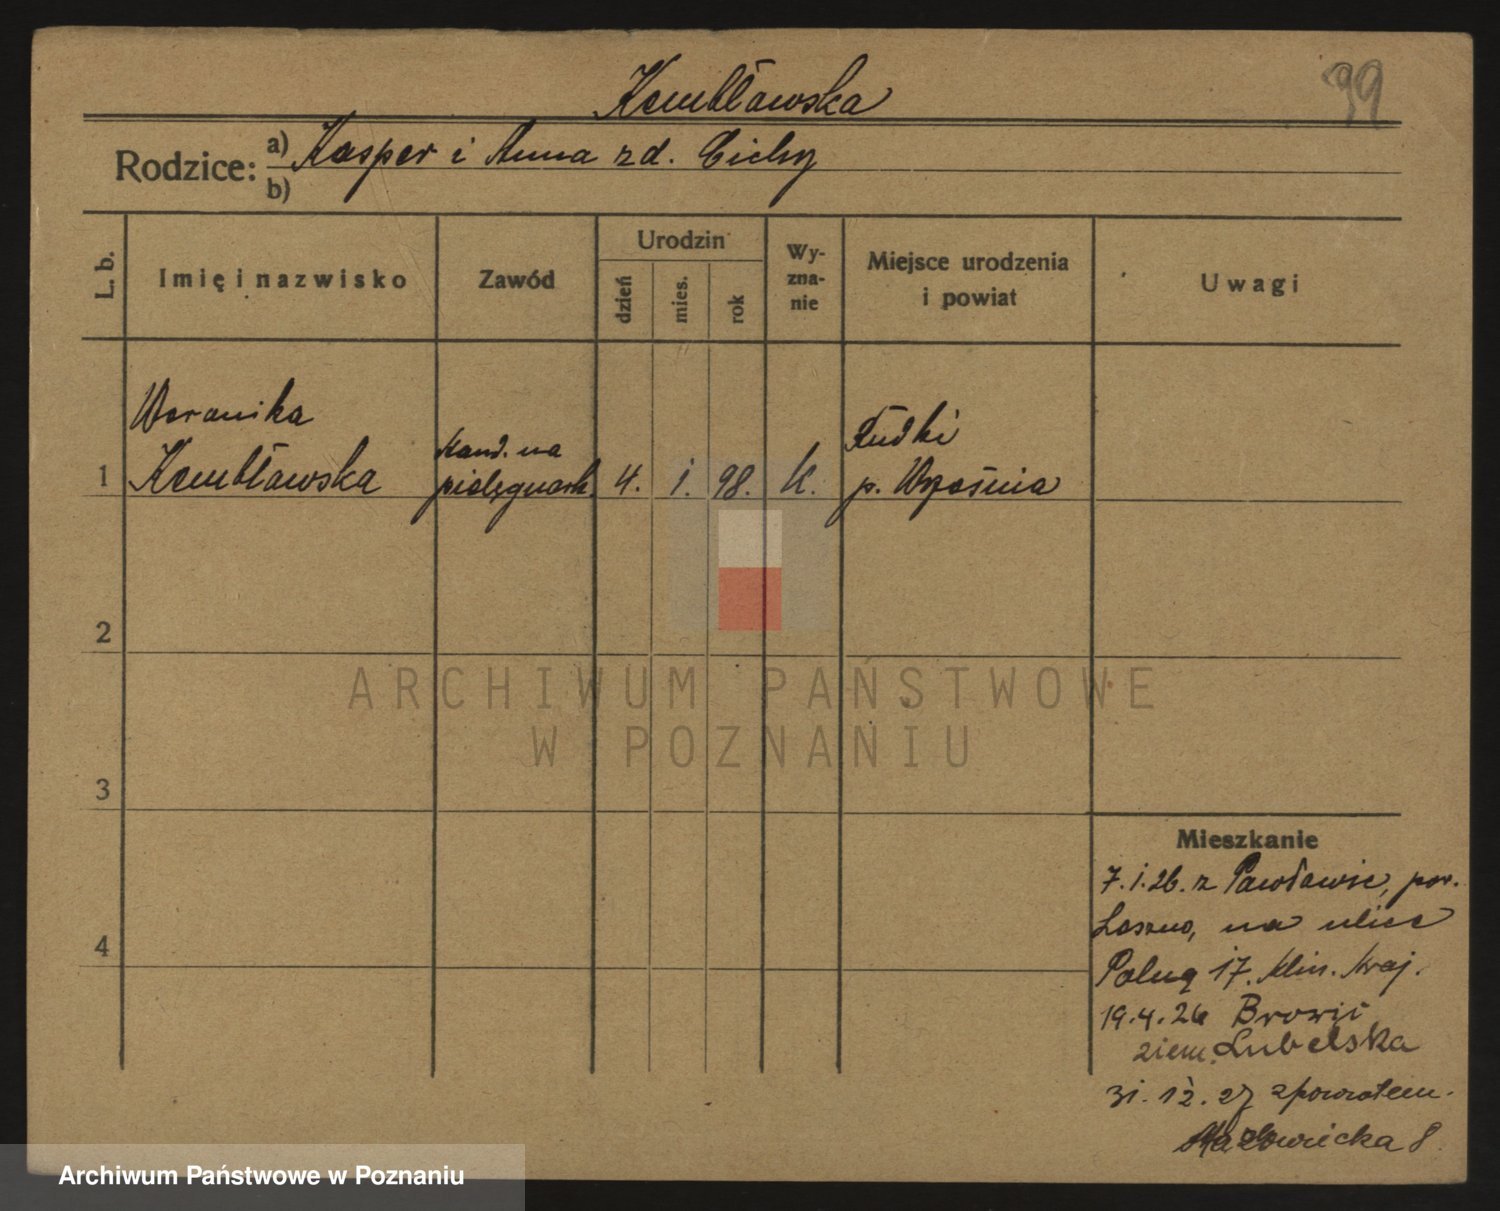 Kembławska
99
Rodzice:
a) Kasper i Anna zd. Cichy
b)
L. b.
Imię i nazwisko
Zawód
Urodzin
dzień
mies.
rok
Wy-
zna-
nie
Miejsce urodzenia
i powiat
Uwagi
Weronika
Kembławska
Kand. na
pielęgniark.
1
4.
i.
98.
k.
p. Września
2
ARCHIWUM PAŃSTWOWE
W POZNANIU
3
Mieszkanie
7.i.26. z Pawłowic, pow.
Leszno, na ulicę
Polną 17. Klin. Kraj.
4
19.4.26
ziem. Lubelska
31.12.27 zpowrotem.
Mazowiecka 8
Archiwum Państwowe w Poznaniu